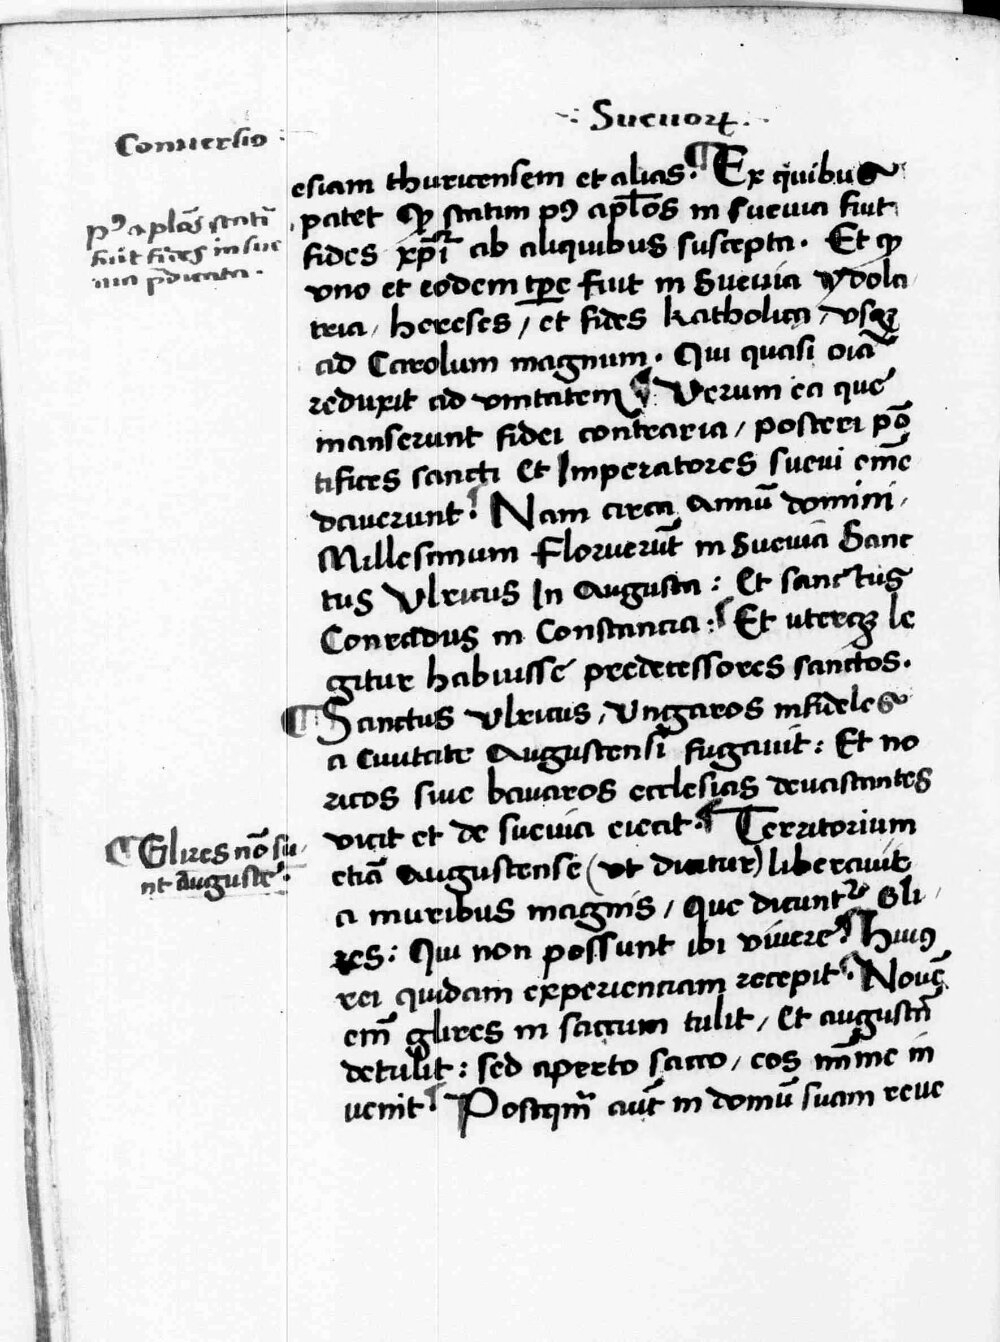 Conuersio :
·: Sueuoꝝ :·
esiam thuricensem et alias. ¶ Ex quibus
patet ꝙ statim pꝰ apl̅os in sueuia fuit
fides xp̅i ab aliquibus suscepta. Et ꝙ
vno et eodem tp̅e fuit in Sueuia ydola
tria, hereses, et fides katholica, vsqꝫ
ad Carolum magnum. Qui quasi oı̅a
reduxit ad vnitatem ¶ Verum ea que
manserunt fidei contraria, posteri po̅
tifices sancti Et Imperatores sueui eme̅
dauerunt. ¶ Nam circa Annu̅ domini,
Millesimum Floruerūt in Sueuia Sanc
tus Vlricus In Augusta : Et sanctus
Conradus in Constancia : ¶ Et uterqꝫ le
gitur habuisse predecessores sanctos.
¶ Sanctus Vlricus, Vngaros infideles
a Ciuitate Augustensi fugauit : Et no
ricos siue bauaros ecclesias deuastantes
vicit et de sueuia eiecit. ¶ Territorium
etia̅ Augustense (vt dicitur) liberauit
a muribus magnis, Que dicunt᷑ Gli,
res : Qui non possunt ibi viuere. ¶ Huiꝰ
rei quidam experienciam recepit. ¶ Noue̅
em̅ glires in saccum tulit, Et augusta̅
detulit : sed aperto sacco, eos mı̅me in
uenit ¶ Postqm̅ aut̅ in domu̅ suam reue
pꝰ aplo̅s stati̅
fuit fides in sue
uia p̅dicata.
¶ Glires no̅ su,
nt Auguste.